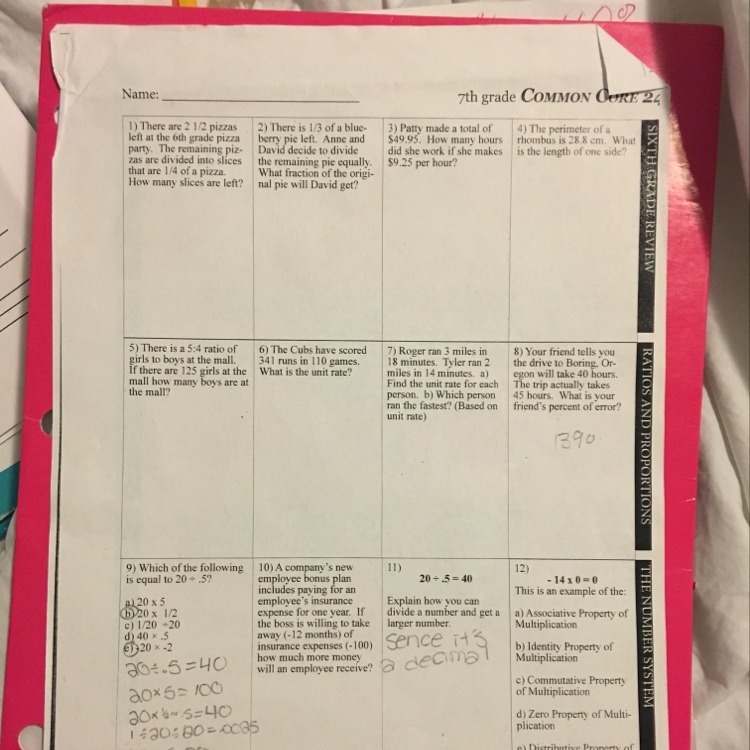 Name:
7th grade COMMON CORE 24
1) There are 2 1/2 pizzas
left at the 6th grade pizza
party. The remaining piz-
zas are divided into slices
that are 1/4 of a pizza.
How many slices are left?
2) There is 1/3 of a blue-
berry pie left. Anne and
David decide to divide
the remaining pie equally.
What fraction of the origi-
nal pie will David get?
3) Patty made a total of
$49.95. How many hours
did she work if she makes
$9.25 per hour?
4) The perimeter of a
rhombus is 28.8 cm. What
is the length of one side?
SIXTH GRADE REVIEW
5) There is a 5:4 ratio of
girls to boys at the mall.
If there are 125 girls at the
mall how many boys are at
the mall?
6) The Cubs have scored
341 runs in 110 games.
What is the unit rate?
7) Roger ran 3 miles in
18 minutes. Tyler ran 2
miles in 14 minutes. a)
Find the unit rate for each
person. b) Which person
ran the fastest? (Based on
unit rate)
8) Your friend tells you
the drive to Boring, Or-
egon will take 40 hours.
The trip actually takes
45 hours. What is your
friend's percent of error?
1390
RATIOS AND PROPORTIONS
9) Which of the following
is equal to 20 ÷ .5?
a) 20 x 5
b) 20 x 1/2
c) 1/20 ÷20
d) 40 × .5
e) -20 × -2
20÷.5=40
20×5=100
1÷20÷20=.0025
10) A company's new
employee bonus plan
includes paying for an
employee's insurance
expense for one year. If
the boss is willing to take
away (-12 months) of
insurance expenses (-100)
how much more money
will an employee receive?
11)
20 ÷ .5 = 40
Explain how you can
divide a number and get a
larger number.
sence it's
a decimal
12)
- 14 x 0 = 0
This is an example of the:
a) Associative Property of
Multiplication
b) Identity Property of
Multiplication
c) Commutative Property
of Multiplication
d) Zero Property of Multi-
plication
e) Distributive Property of
THE NUMBER SYSTEM